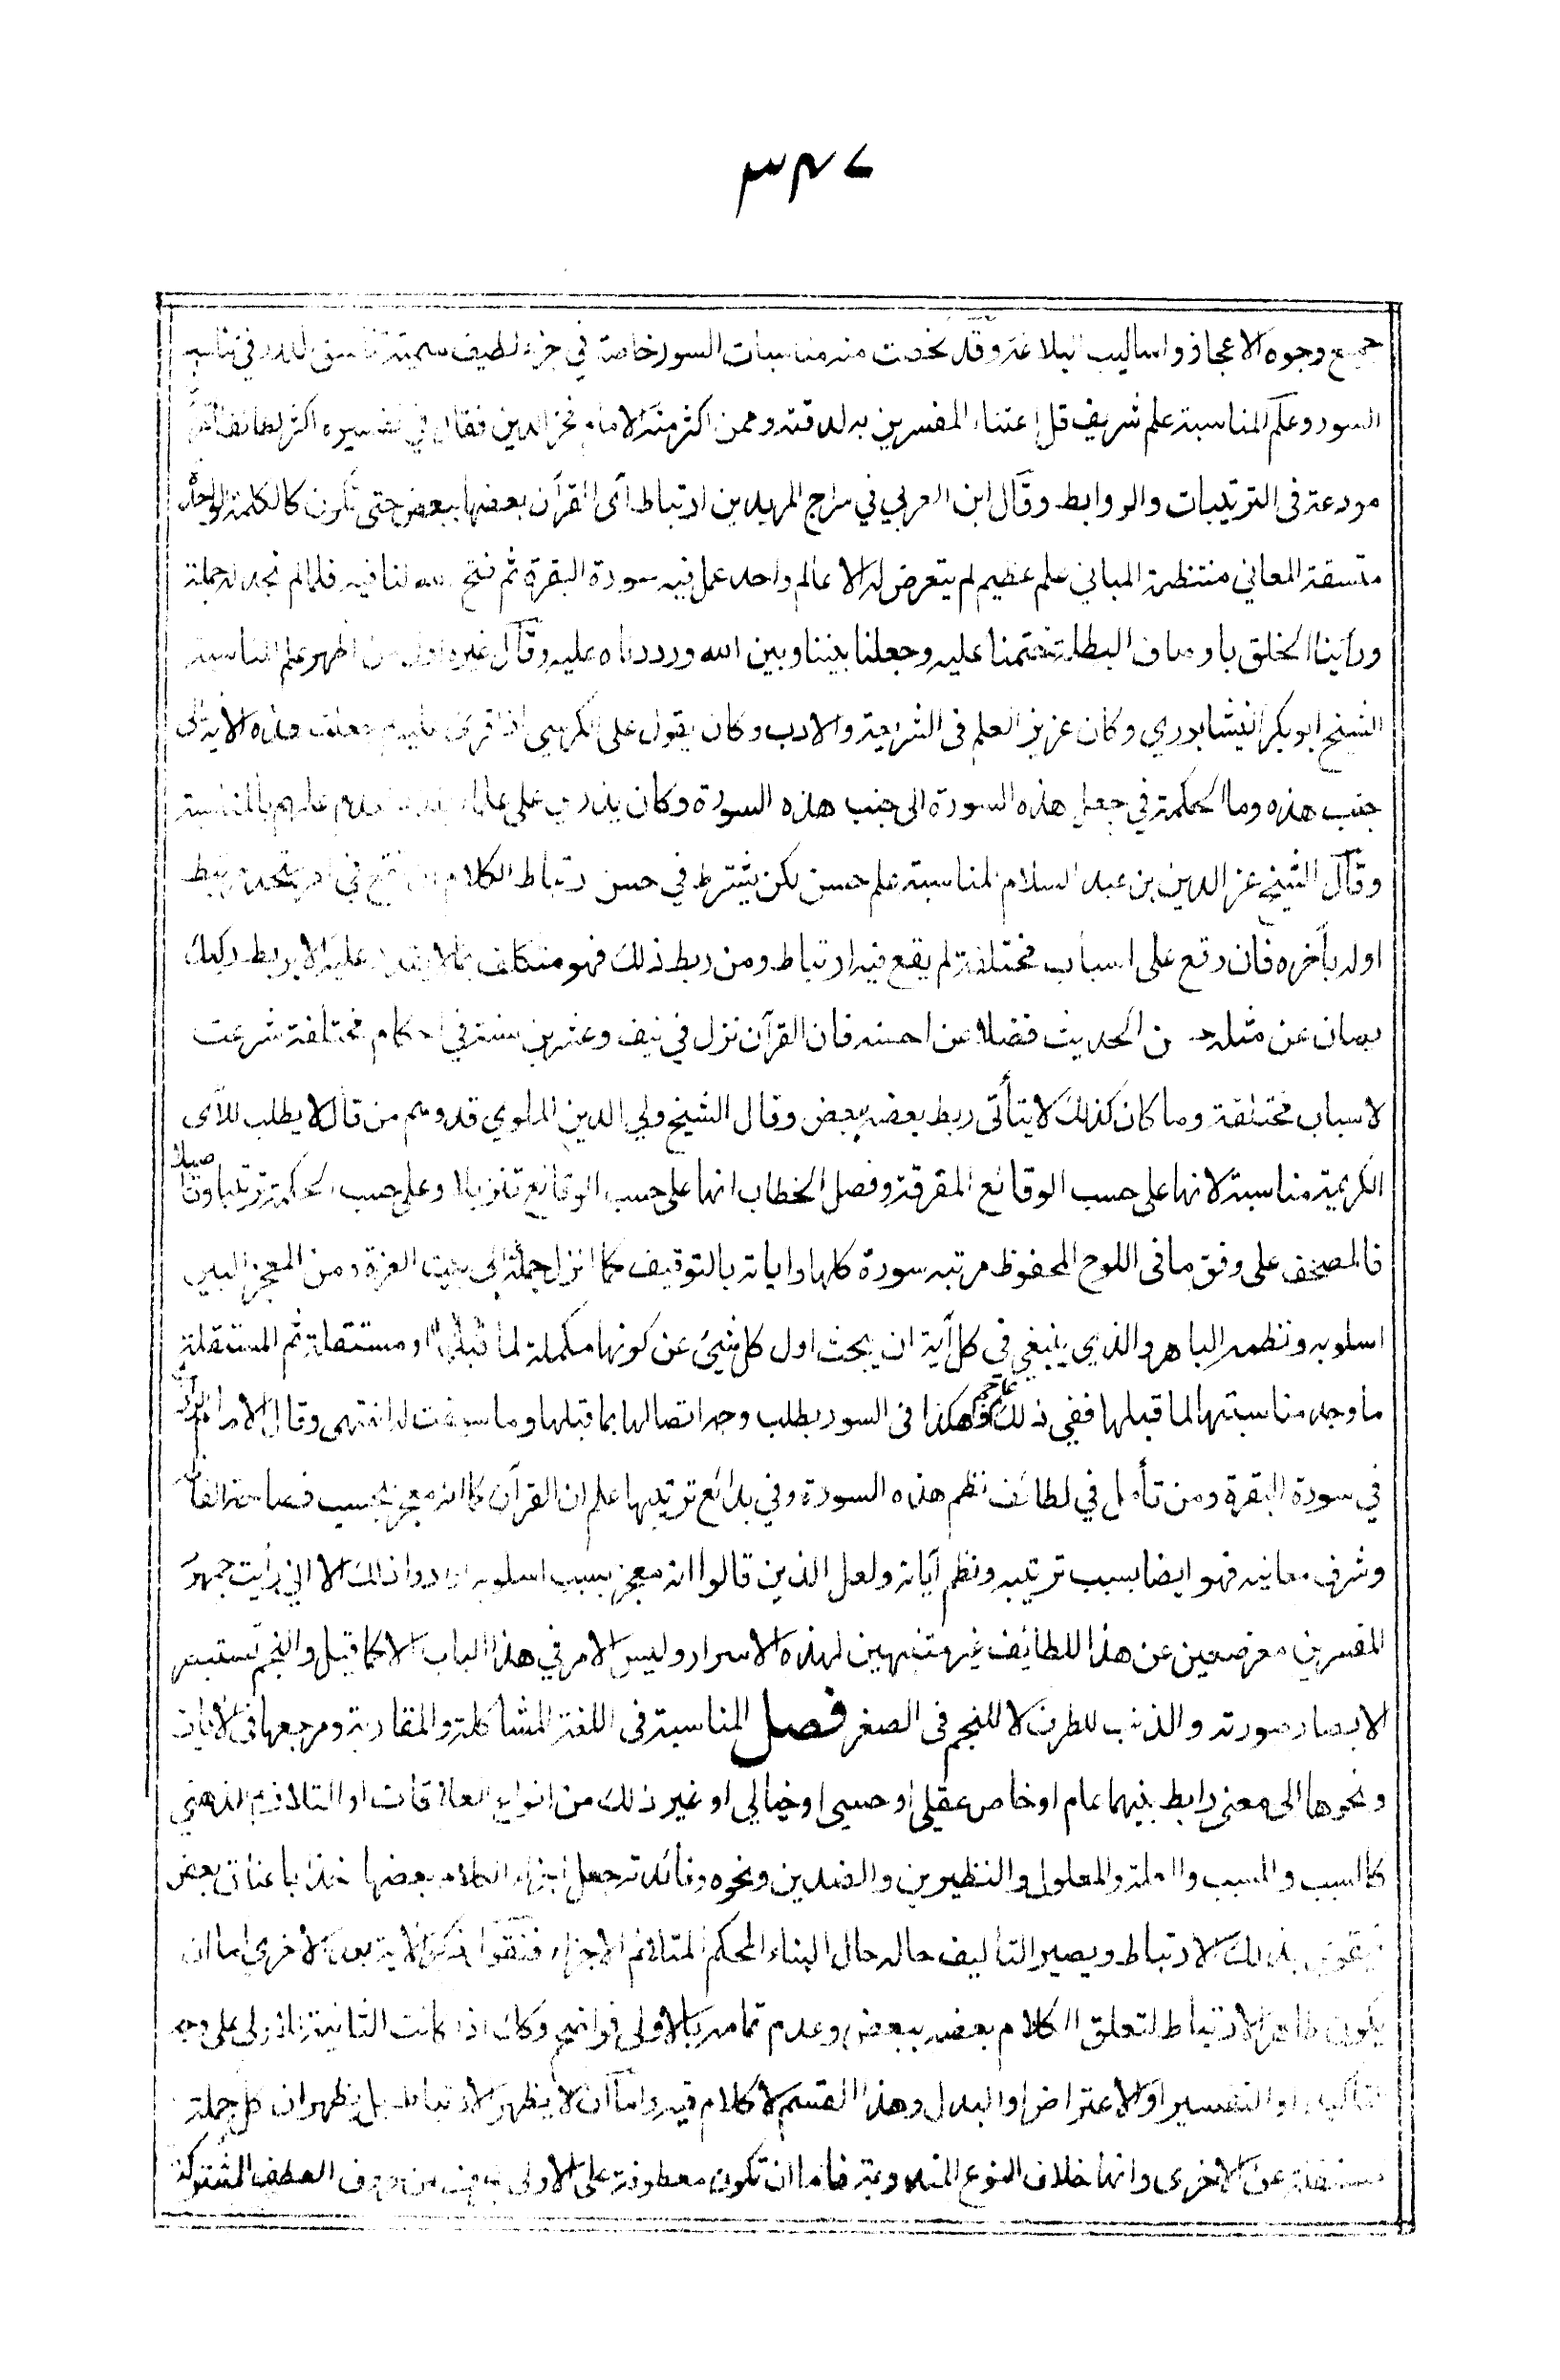 ٣٤٧
جميع وجوه الاعجاز واساليب البلاغة وقد لخصت منه مناسبات السور خاصة في جزء لطيف سميته تناسق الدرر في تناسب
السور وعلم المناسبة علم شريف قل اعتناء المفسرين به لدقته وممن اكثر منه الامام فخر الدين فقال في تفسيره اكثر لطائف القرآن
مودعة فى الترتيبات والروابط وقال ابن العربي في سراج المريدين ارتباط آى القرآن بعضها ببعض حتى تكون كالكلمة الواحدة
متسقة المعاني منتظمة المباني علم عظيم لم يتعرض له الا عالم واحد عمل فيه سورة البقرة ثم فتح الله لنا فيه فلما لم نجد له حملة
ورأينا الخلق باوصاف البطلة ختمنا عليه وجعلنا بيننا وبين الله ورددناه عليه وقال غيره اول من اظهر علم المناسبة
الشيخ ابو بكر النيشابوري وكان عزيز العلم فى الشريعة والادب وكان يقول على الكرسي اذا قرئ عليه لم جعلت هذه الاية الى
جنب هذه وما الحكمة في جعل هذه السورة الى جنب هذه السورة وكان يزري على علماء بغداد لعدم علمهم بالمناسبة
وقال الشيخ عز الدين بن عبد السلام المناسبة علم حسن لكن يشترط في حسن ارتباط الكلام ان يقع في امر متحد مرتبط
اوله بآخره فان وقع على اسباب مختلفة لم يقع فيه ارتباط ومن ربط ذلك فهو متكلف بما لا يقدر عليه الا بربط ركيك
يصان عن مثله حسن الحديث فضلا عن احسنه فان القرآن نزل في نيف وعشرين سنة في احكام مختلفة شرعت
لاسباب مختلفة وما كان كذلك لا يتأتى ربط بعضه ببعض وقال الشيخ ولي الدين الملوي قد وهم من قال لا يطلب للآى
الكريمة مناسبة لانها على حسب الوقائع المفرقة وفصل الخطاب انها على حسب الوقائع تنزيلا وعلى حسب الحكمة ترتيبا وتاصيلا
فالمصحف على وفق ما فى اللوح المحفوظ مرتبه سورة كلها واياته بالتوقيف كما انزل جملة الى بيت العزة ومن المعجز البين
اسلوبه ونظمه الباهر والذي ينبغي في كل آية ان يبحث اول كل شيئ عن كونها مكملة لما قبلها او مستقلة ثم المستقلة
ما وجه مناسبتها لما قبلها ففي ذلك علم جم وهكذا فى السور يطلب وجه اتصالها بما قبلها وما سيقت له انتهى وقال الامام الرازي
في سورة البقرة ومن تأمل في لطائف نظم هذه السورة وفي بدائع ترتيبها علم ان القرآن كما انه معجز بحسب فصاحة الفاظه
وشرف معانيه فهو ايضا بسبب ترتيبه ونظم آياته ولعل الذين قالوا انه معجز بسبب اسلوبه ارادوا ذلك الا اني رأيت جمهور
المفسرين معرضين عن هذا للطائف غير متنبهين لهذه الاسرار وليس الامر في هذا الباب الا كما قيل والنجم تستصغر
الابصار صورته والذنب للطرف لا للنجم فى الصغر فصل المناسبة فى اللغة المشاكلة والمقاربة ومرجعها فى الايات
ونحوها الى معنى رابط بينهما عام او خاص عقلي او حسي او خيالي او غير ذلك من انواع العلاقات او التلازم الذهني
كالسبب والمسبب والعلة والمعلول والنظيرين والضدين ونحوه وفائدته جعل اجزاء الكلام بعضها اخذا باعناق بعض
فيقوى بذلك الارتباط ويصير التاليف حاله حال البناء المحكم المتلائم الاجزاء فنقول ذكر الاية بعد الاخرى اما ان
يكون ظاهر الارتباط لتعلق الكلام بعضه ببعض وعدم تمامه بالاولى فواضح وكذلك اذا كانت الثانية للاولى على وجه
التأكيد او التفسير او الاعتراض او البدل وهذا القسم لا كلام فيه واما ان لا يظهر الارتباط بل يظهر ان كل جملة
مستقلة عن الاخرى وانها خلاف النوع المبدو به فاما ان تكون معطوفة على الاولى بحرف من حروف العطف المشتركة